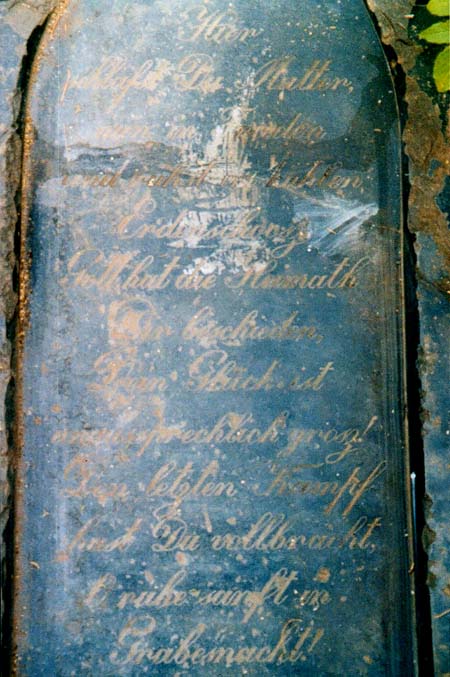 Hier
schläfst Du Mutter,
nun in Frieden
und ruhst im kühlen,
Erdenschooß
Gott hat die Heimath
Dir beschieden,
Dein Glück ist
unaussprechlich groß!
Den letzten Kampf
hast Du vollbracht,
O ruhe sanft in
Grabemacht!